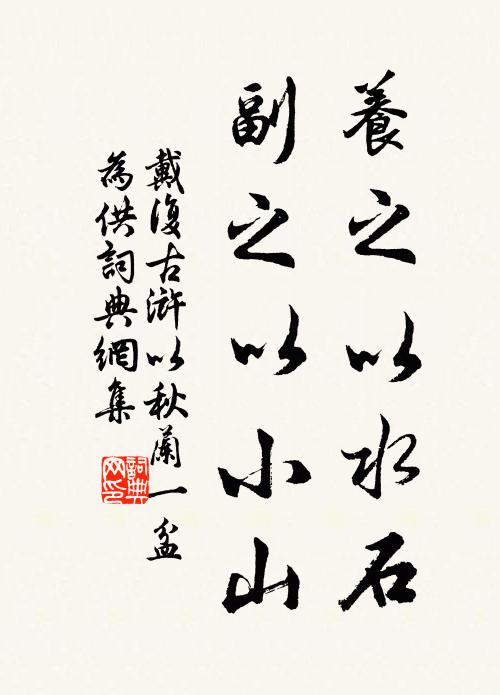 養之以水石
副之以小山
戴復古滸以秋蘭一盆
為供詞典網集
詞典
网印